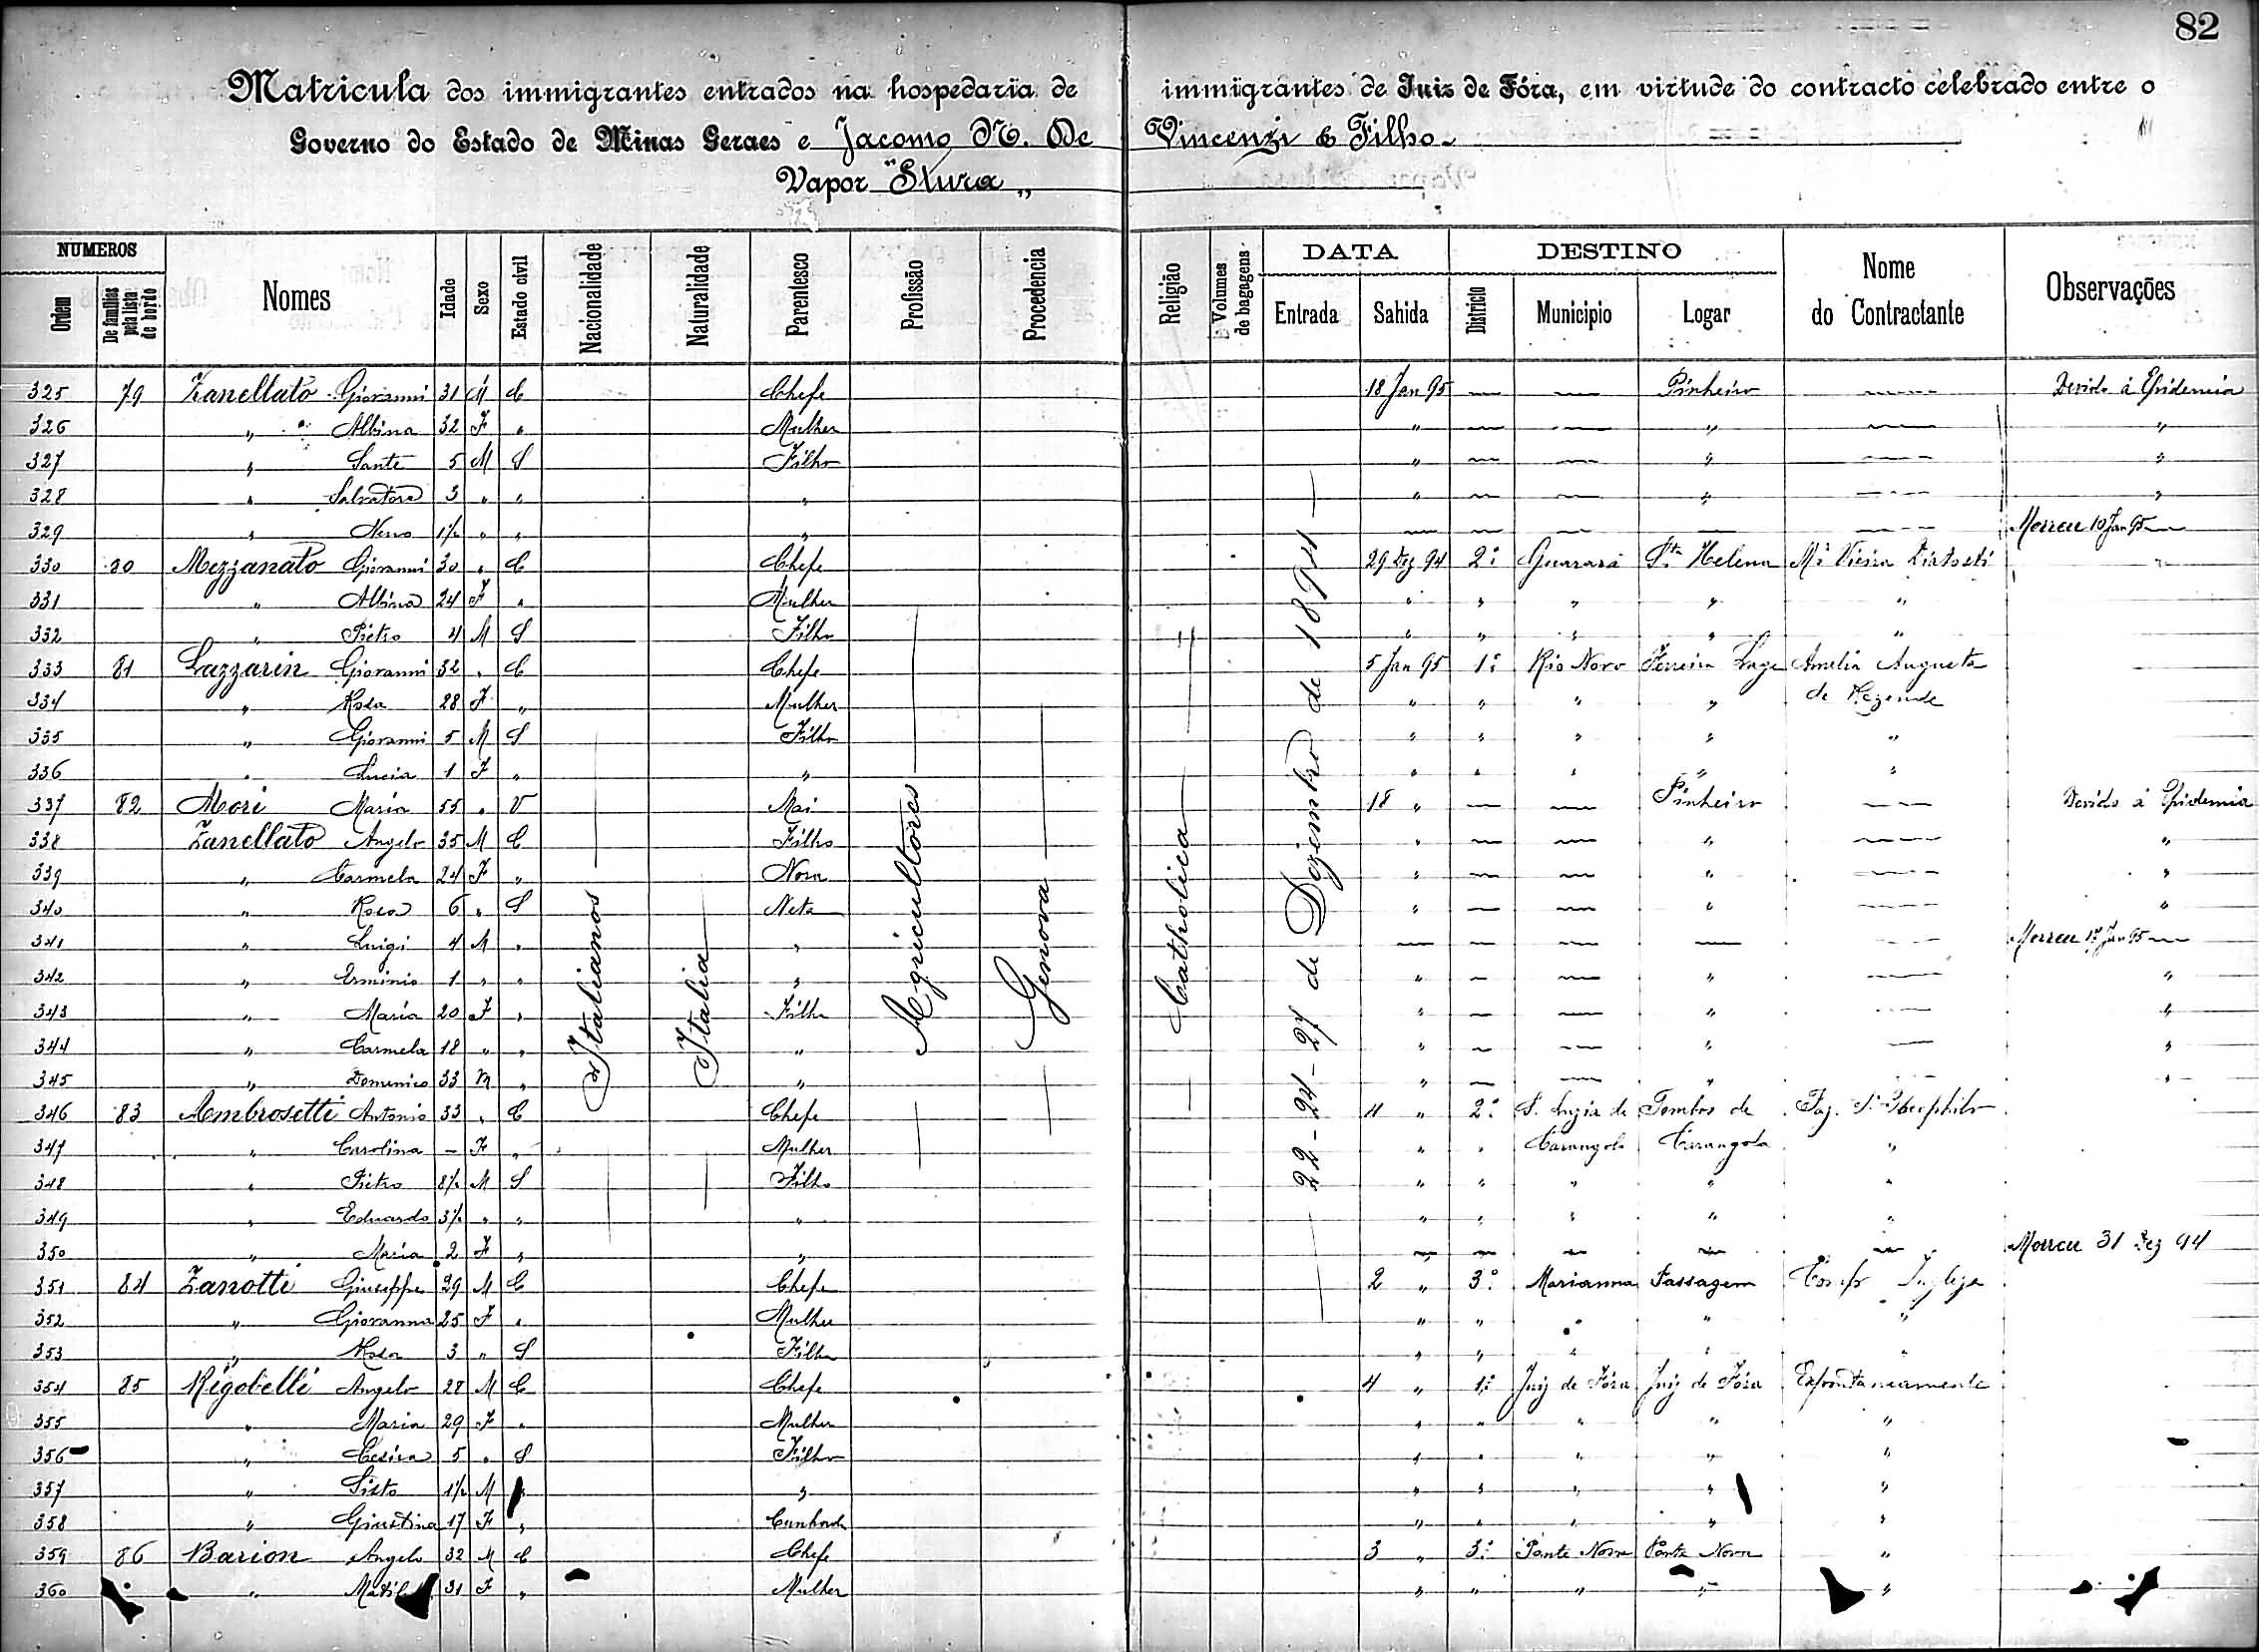 82
Matricula dos immigrantes entrados na hospedaria de immigrantes de Juiz de Fóra, em virtude do contracto celebrado entre o
Governo do Estado de Minas Geraes e Jacomo N. De Vincenzi & Filho
Vapor "Stura"
NUMEROS DATA DESTINO
Ordem De familias pela lista de bordo Nomes Idade Sexo Estado civil Nacionalidade Naturalidade Parentesco Profissão Procedencia Religião Volumes de bagagens Entrada Sahida Districto Municipio Logar Nome do Contractante Observações
Italianos
Italia
Agricultores
Genova
Catholica
22-24-27 de Dezembro de 1894
325 79 Zanellato Giovanni 31 M C Chefe 18 Jan 95 — — Pinheiro — Devido á Epidemia
326 " Albina 32 F " Mulher " — — " — "
327 " Sante 5 M S Filho " — — " — "
328 " Salvatore 3 " " " " — — " — "
329 " 1½ " " " — — — — — Morreu 10 Jan 95
330 80 Mezzanato Giovanni 30 " C Chefe 29 Dez 94 2º Guarará Sta Helena Mel Vieira
331 " Albina 24 F " Mulher " " " " "
332 " Pietro 4 M S Filho " " " " "
333 81 Lazzarin Giovanni 32 " C Chefe 5 Jan 95 1º Rio Novo Ferreira Lage Amelia Augusta
334 " Rosa 28 F " Mulher " " " " de Rezende
335 " Giovanni 5 M S Filho " " " " "
336 " Lucia 1 F " " " " " " "
337 82 Mori Maria 55 " V Mai 18 " — — Pinheiro — Devido á Epidemia
338 Zanellato Angelo 35 M C Filho " — — " — "
339 " Carmela 24 F " Nora " — — " — "
340 " Rosa 6 " S Neta " — — " — "
341 " Luigi 4 M " " — — — — — Morreu 17 Jan 95
342 " Erminio 1 " " " " — — " — "
343 " Maria 20 F " Filha " — — " — "
344 " Carmela 18 " " " " — — " — "
345 " Domenico 33 M " " " — — " — "
346 83 Ambrosetti Antonio 33 " C Chefe 4 " 2º S. Luzia de Tombos de Faz.
347 " Carolina - F " Mulher " " Carangola Carangola "
348 " Pietro 8½ M S Filho " " " " "
349 " Eduardo 3½ " " " " " " " "
350 " Maria 2 F " " — — — — — Morreu 31 Dez 94
351 84 Zanotti Giuseppe 29 M C Chefe 2 " 3º Marianna Passagem Ingleza
352 " Giovanna 25 F " Mulher " " " " "
353 " Rosa 3 " S Filha " " " " "
354 85 Rigobelli Angelo 28 M C Chefe 4 " 1º Juiz de Fóra Juiz de Fóra Espontaneamente
355 " Maria 29 F " Mulher " " " " "
356 " Cesira 5 " S Filho " " " " "
357 " Sisto 1½ M " " " " " " "
358 " Giustina 17 F " Cunhada " " " " "
359 86 Barion Angelo 32 M C Chefe 3 " 3º Ponte Nova Ponte Nova "
360 " 31 F " Mulher " " " " "